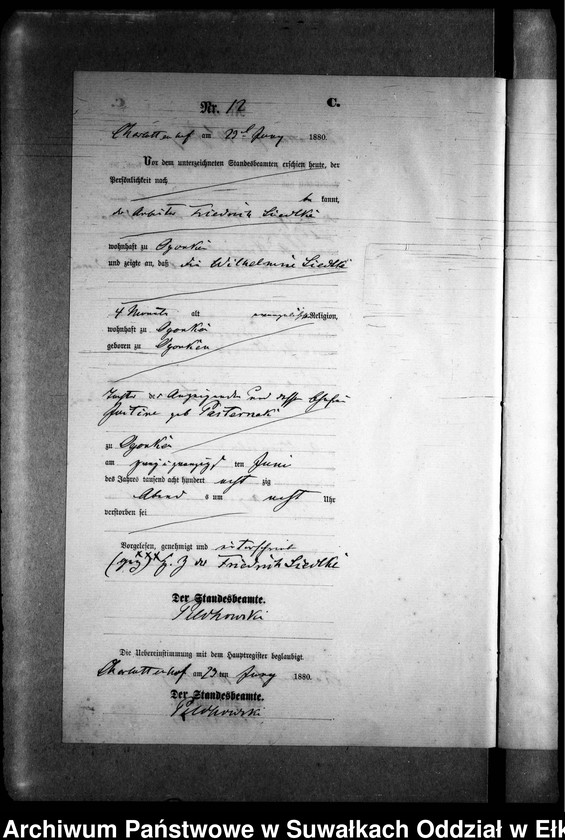 Nr. 12 C.
Charlottenhof am 23t Juny 1880.
Vor dem unterzeichneten Standesbeamten erschien heute, der
Persönlichkeit nach
be kannt,
der Arbeiter Friedrich Siedlki
wohnhaft zu Ogonken
und zeigte an, daß die Wilhelmine Siedlki
4 Monate alt evangelischer Religion,
wohnhaft zu Ogonken
geboren zu Ogonken
Tochter des Anzeigenden und dessen Ehefrau
Justine geb Pasternak
zu Ogonken
am zwei u zwanzigst ten Juni
des Jahres tausend acht hundert acht zig
Abend s um acht Uhr
verstorben sei
Vorgelesen, genehmigt und unterschrieb
(gez) xxx H. Z des Friedrich Siedlki
Der Standesbeamte.
Die Uebereinstimmung mit dem Hauptregister beglaubigt.
Charlottenhof am 23 ten Juny 1880.
Der Standesbeamte.
Archiwum Państwowe w Suwałkach Oddział w Ełk